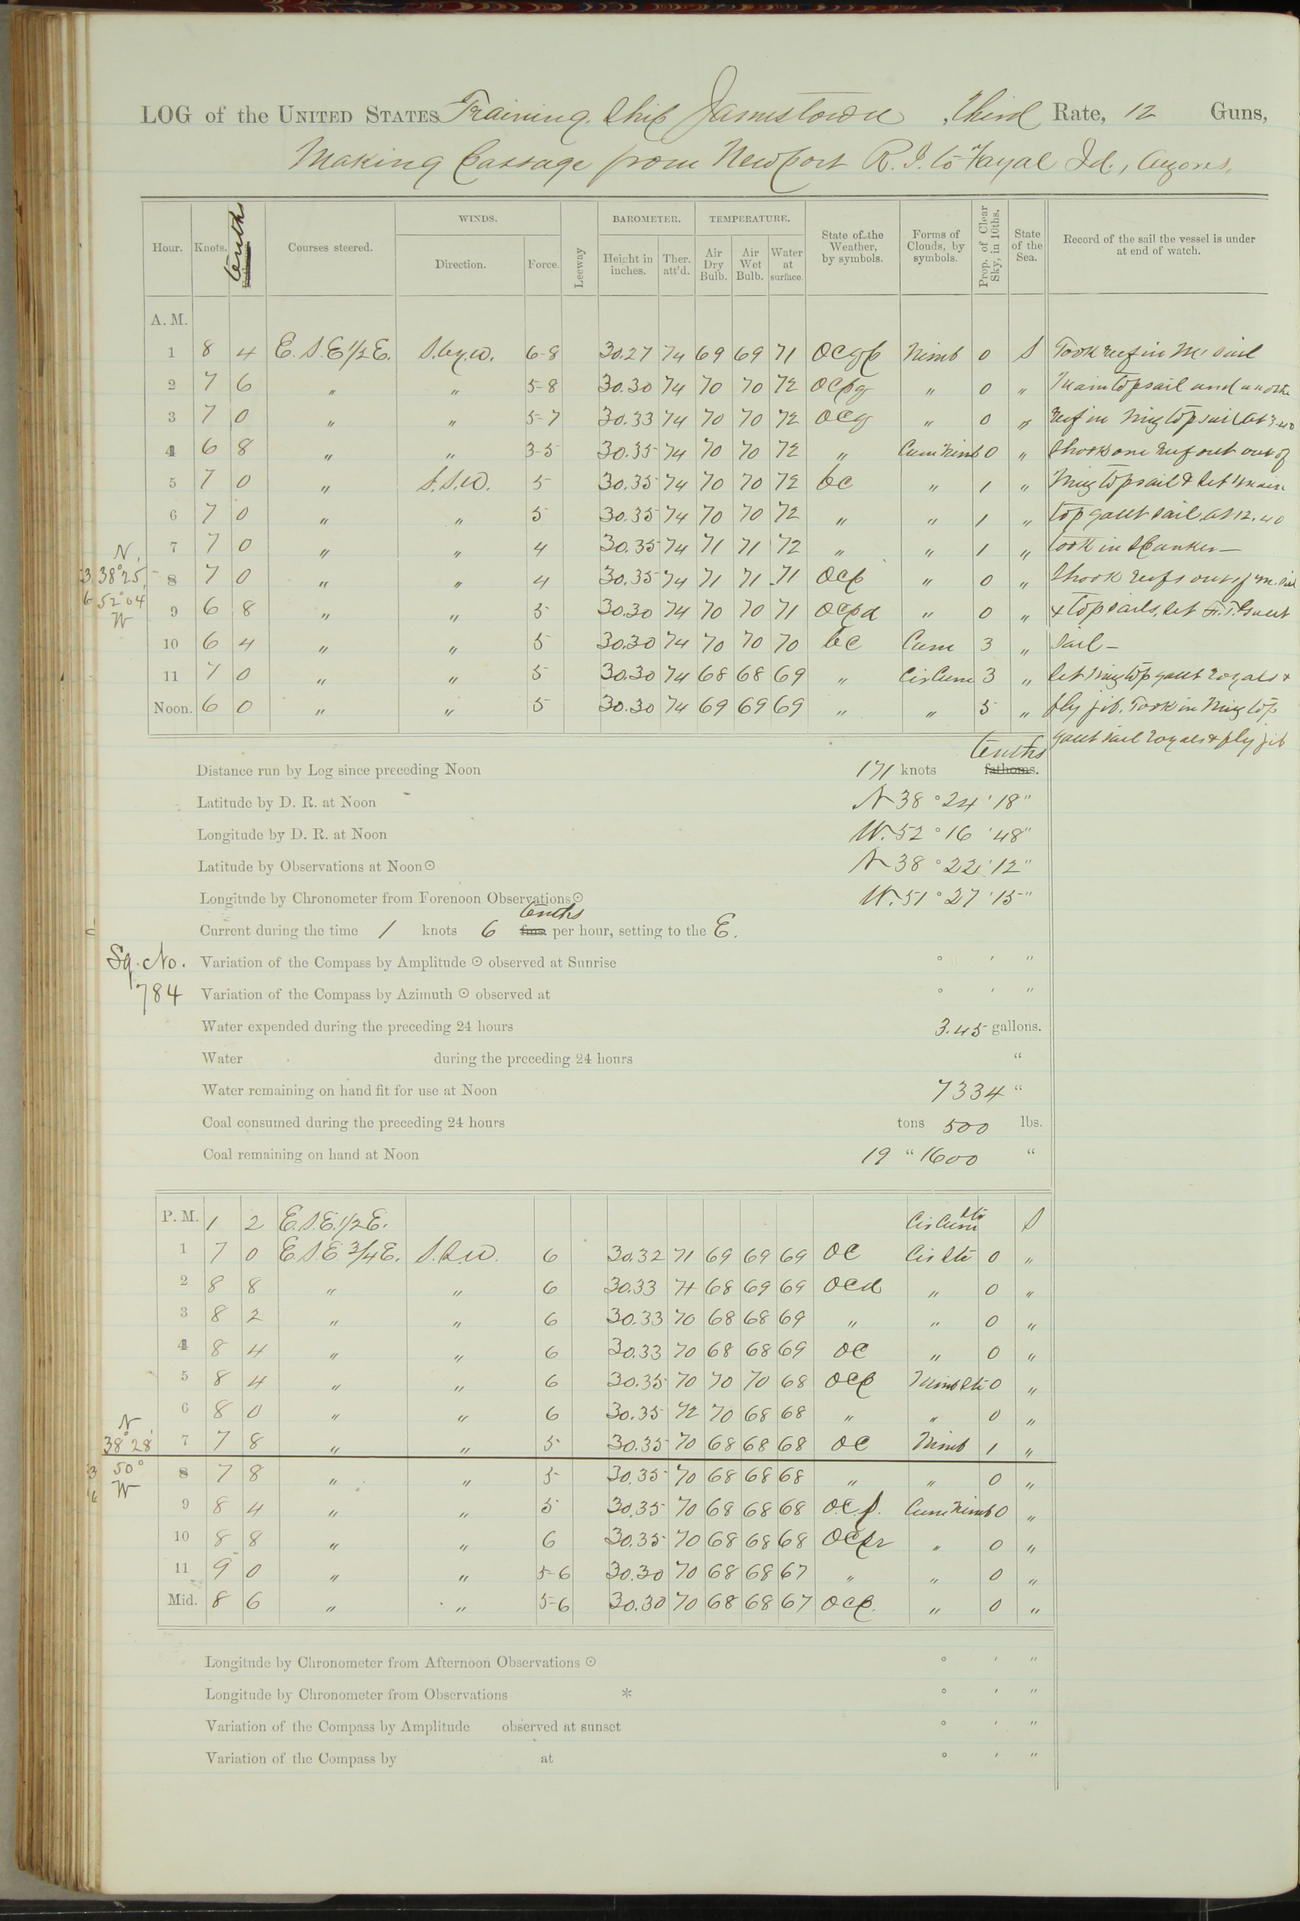 LOG of the UNITED STATES Training Ship Jamestown, Third Rate, 12 Guns,
Making Passage from Newport R.I. to Fayal Id., Azores,
Hour. Knots. tenths Courses steered. WINDS. Direction. Force. Leeway BAROMETER. Height in inches. Ther. att'd. TEMPERATURE. Air Dry Bulb. Air Wet Bulb. Water at surface. State of the Weather, by symbols. Forms of Clouds, by symbols. Prop. of Clear Sky, in 10ths. State of the Sea. Record of the sail the vessel is under at end of watch.
A. M.
1 8 4 E.S.E 1/2 E. S.by.W. 6-8 30.27 74 69 69 71 ocqp Nimb 0 S Took reef in M. sail
2 7 6 " " 5-8 30.30 74 70 70 72 ocpq " 0 " Main topsail and another
3 7 0 " " 5-7 30.33 74 70 70 72 ocq " 0 " reef in Miz topsail. At 3.40
4 6 8 " " 3-5 30.35 74 70 70 72 " Cum Nimb 0 " Shook one reef out out of
5 7 0 " S.S.W. 5 30.35 74 70 70 72 bc " 1 " Miz topsail & set Main
6 7 0 " " 5 30.35 74 70 70 72 " " 1 " top gallt sail. At 12.40
7 7 0 " " 4 30.35 74 71 71 72 " " 1 " took in Spanker—
N.
38°25'
52°04
W
8 7 0 " " 4 30.35 74 71 71 71 ocp " 0 " Shook reefs out of M. sail
9 6 8 " " 5 30.30 74 70 70 71 ocpd " 0 " & topsails, set F.T. Gallt
10 6 4 " " 5 30.30 74 70 70 70 bc Cum 3 " sail—
11 7 0 " " 5 30.30 74 68 68 69 " Cir Cum 3 " Set Miz top gallt royals &
Noon. 6 0 " " 5 30.30 74 69 69 69 " " 5 " fly jib. Took in Miz top
gallt sail royals & fly jib
Distance run by Log since preceding Noon 171 knots tenths fathoms.
Latitude by D. R. at Noon N 38 ° 24 ' 18 "
Longitude by D. R. at Noon W. 52 ° 16 ' 48 "
Latitude by Observations at Noon ☉ N 38 ° 22 ' 12 "
Longitude by Chronometer from Forenoon Observations ☉ W. 51 ° 27 ' 15 "
Current during the time 1 knots 6 tenths fms. per hour, setting to the E.
Sq. No.
784
Variation of the Compass by Amplitude ☉ observed at Sunrise ° ' "
Variation of the Compass by Azimuth ☉ observed at ° ' "
Water expended during the preceding 24 hours 3.45 gallons.
Water during the preceding 24 hours "
Water remaining on hand fit for use at Noon 7334 "
Coal consumed during the preceding 24 hours tons 500 lbs.
Coal remaining on hand at Noon 19 " 1600 "
P. M. 1 2 E.S.E. 1/2 E. Cir Cum Str S
1 7 0 E.S.E 3/4 E. S.S.W. 6 30.32 71 69 69 69 oc Cir Str 0 "
2 8 8 " " 6 30.33 71 68 69 69 ocd " 0 "
3 8 2 " " 6 30.33 70 68 68 69 " " 0 "
4 8 4 " " 6 30.33 70 68 68 69 oc " 0 "
5 8 4 " " 6 30.35 70 70 70 68 ocp Nimb Str 0 "
6 8 0 " " 6 30.35 72 70 68 68 " " 0 "
N
38°28'
50°
W
7 7 8 " " 5 30.35 70 68 68 68 oc Nimb 1 "
8 7 8 " " 5 30.35 70 68 68 68 " " 0 "
9 8 4 " " 5 30.35 70 68 68 68 o.c.p. Cum Nimb 0 "
10 8 8 " " 6 30.35 70 68 68 68 ocpr " 0 "
11 9 0 " " 5-6 30.30 70 68 68 67 " " 0 "
Mid. 8 6 " " 5-6 30.30 70 68 68 67 ocp. " 0 "
Longitude by Chronometer from Afternoon Observations ☉ ° ' "
Longitude by Chronometer from Observations * ° ' "
Variation of the Compass by Amplitude observed at sunset ° ' "
Variation of the Compass by at ° ' "